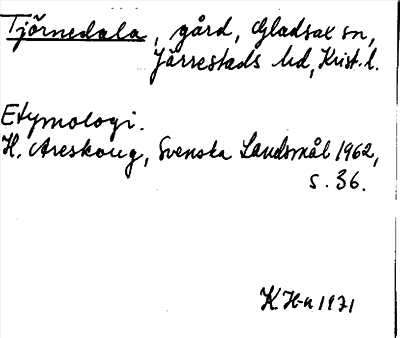 Tjörnedala, gård, Gladsax sn,
Järrestads hd, Krist. l.
Etymologi.
H. Areskoug, Svenska Landsmål 1962,
s. 36.
K H-n 1971